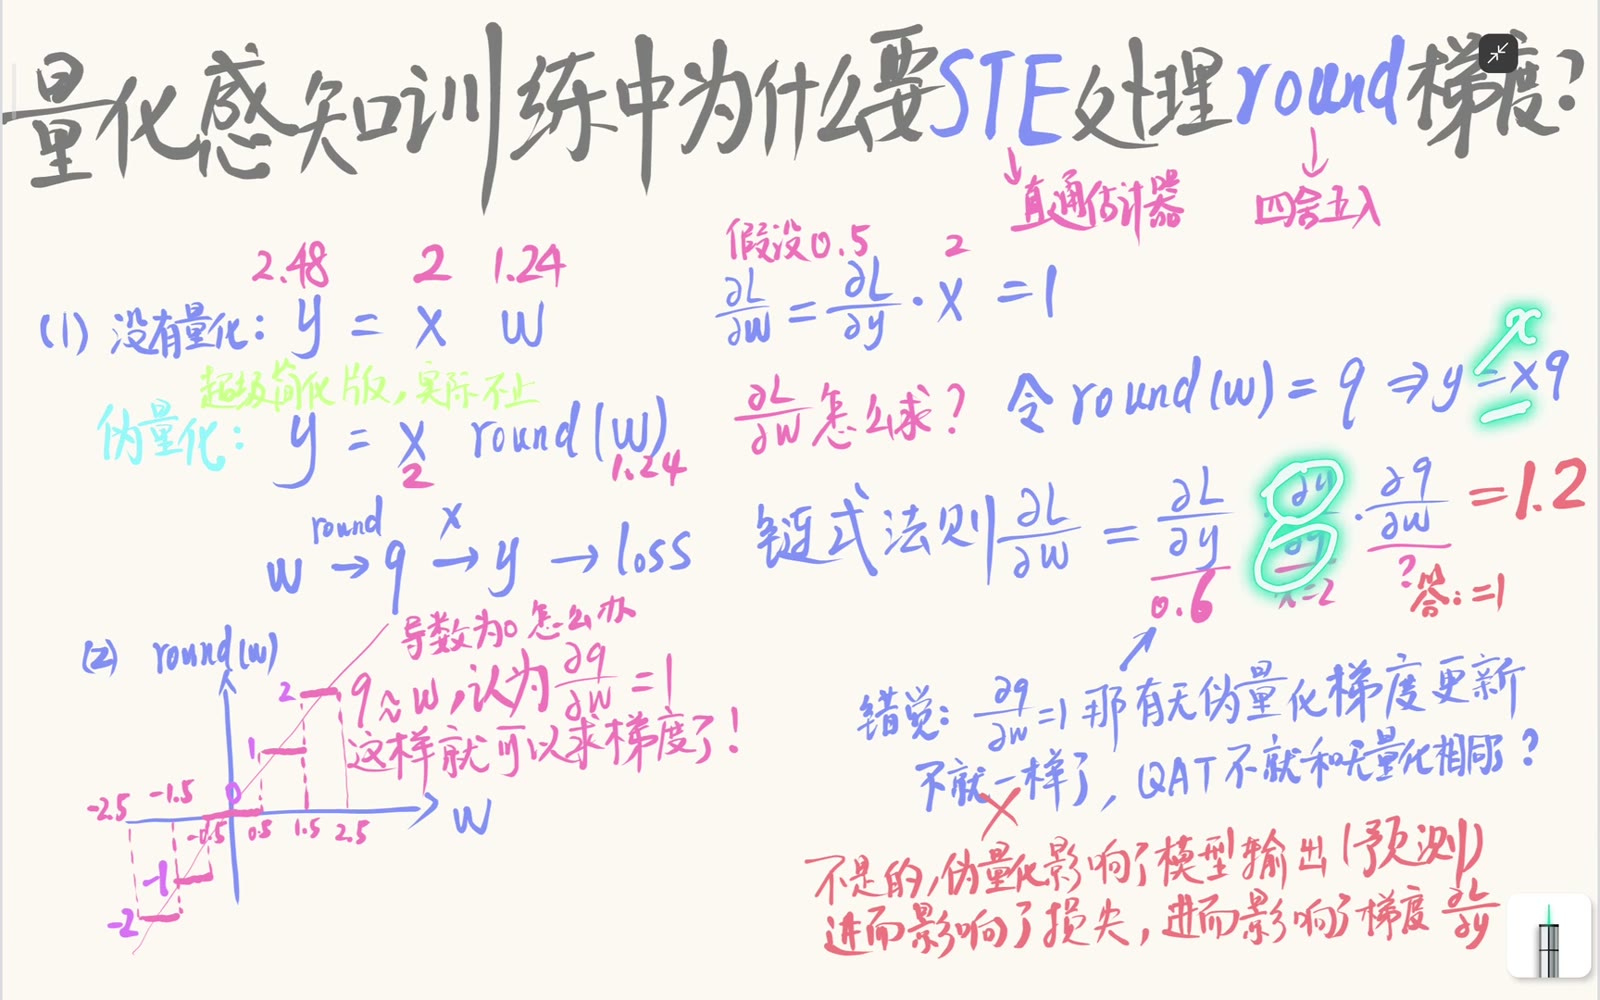 量化感知训练中为什么要STE处理round梯度?
直通估计器 四舍五入
2.48 2 1.24
(1) 没有量化: y = x w
超级简化版,实际不止
伪量化: y = x round(w)
2 1.24
round x
w → q → y → loss
假设0.5 2
∂L/∂w = ∂L/∂y · x = 1
∂L/∂w 怎么求? 令 round(w) = q ⇒ y = xq
x
链式法则 ∂L/∂w = ∂L/∂y · ∂y/∂q · ∂q/∂w = 1.2
0.6 x=2 ? 答: =1
(2) round(w)
导数为0怎么办
q≈w,认为 ∂q/∂w = 1
这样就可以求梯度了!
2
1
-2.5 -1.5 0
-0.5 0.5 1.5 2.5 w
-1
-2
错觉: ∂q/∂w=1 那有无伪量化梯度更新
不就一样了, QAT不就和无量化相同?
不是的,伪量化影响了模型输出(预测)
进而影响了损失,进而影响了梯度 ∂L/∂y